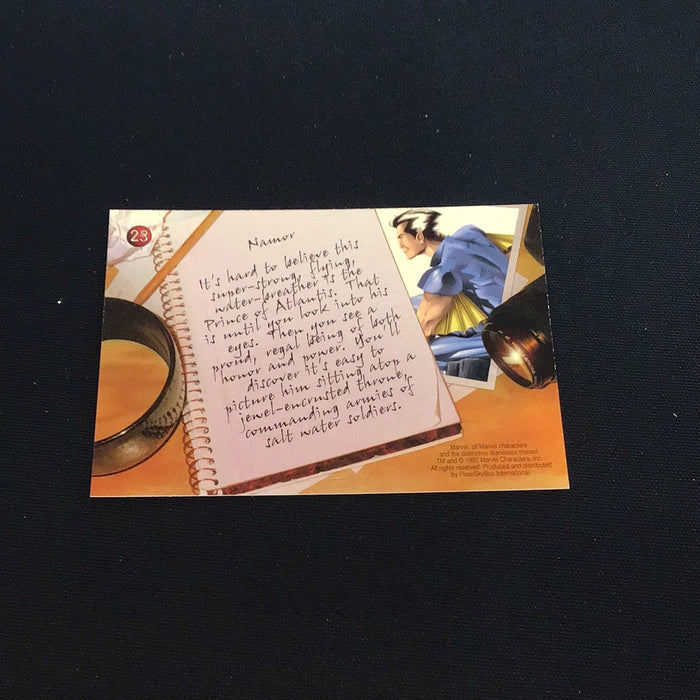 23
Namor
It's hard to believe this
super-strong, flying,
water-breather is the
Prince of Atlantis. That
is until you look into his
eyes. Then you see a
proud, regal being of both
honor and power. You'll
discover it's easy to
picture him sitting atop a
jewel-encrusted throne,
commanding armies of
salt water soldiers.
Marvel, all Marvel characters
and the distinctive likenesses thereof
TM and © 1997 Marvel Characters, Inc.
All rights reserved. Produced and distributed
by Fleer/SkyBox International.